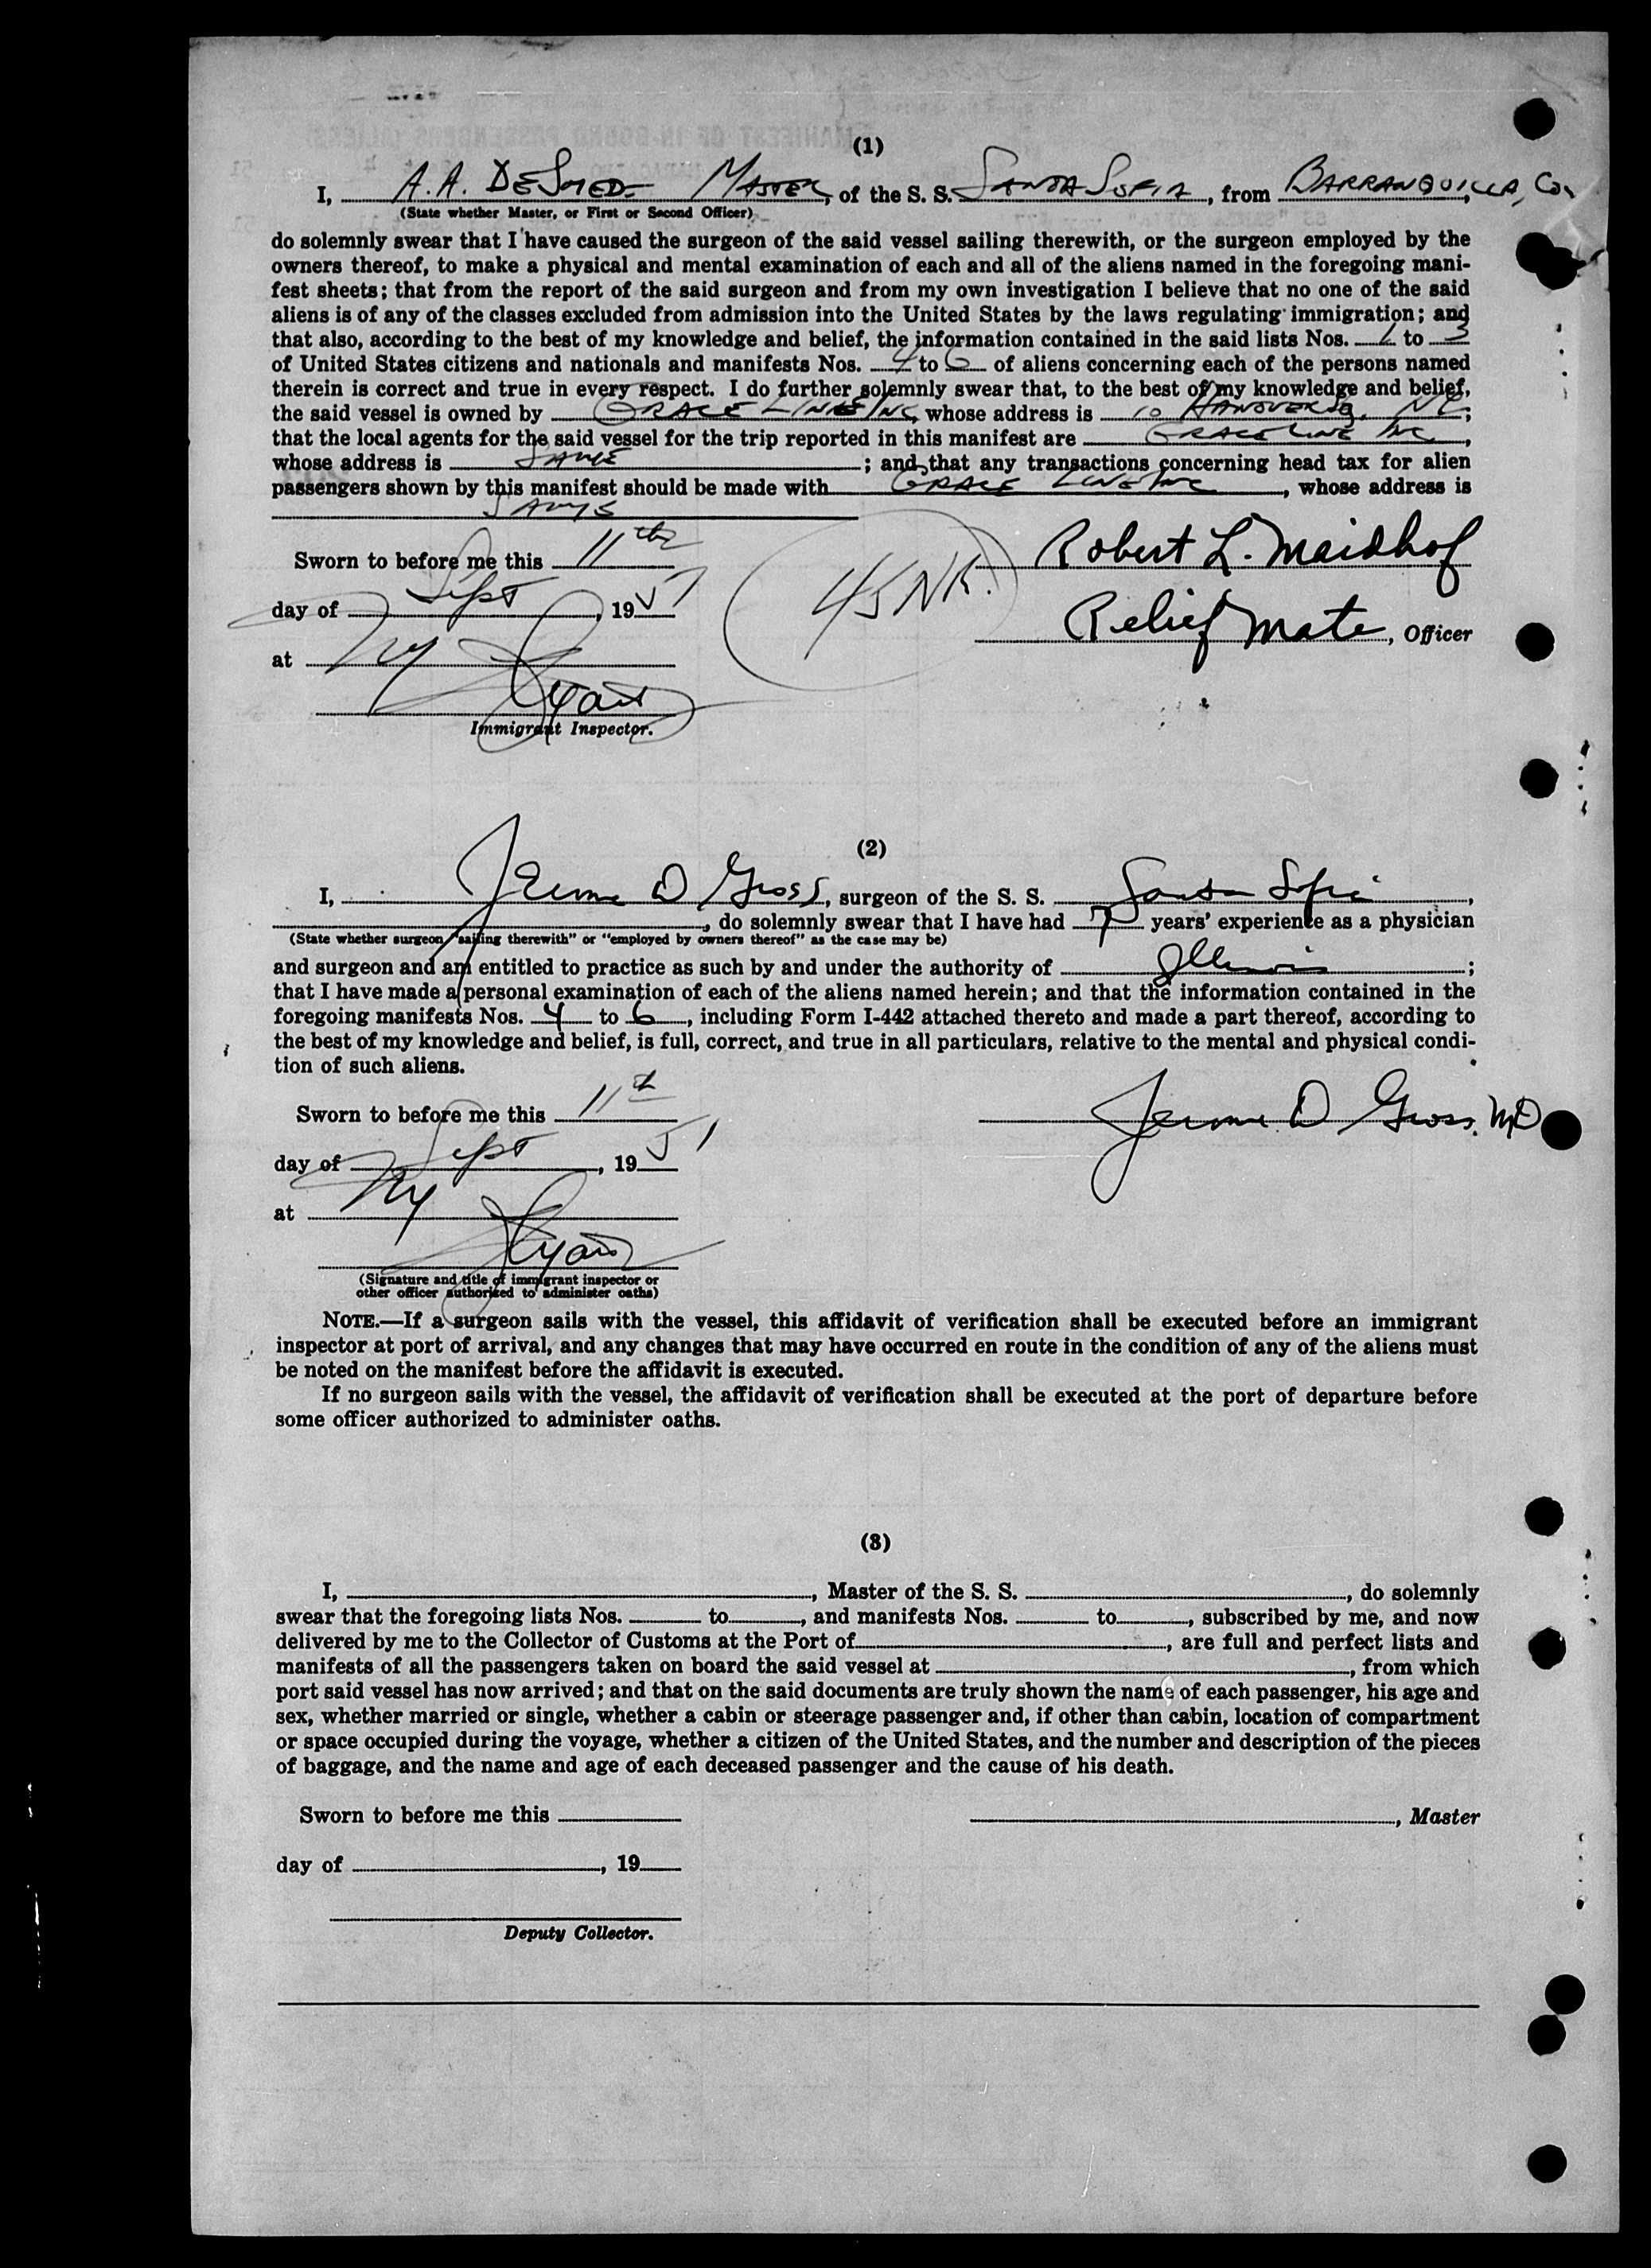 (1)
I, A. A. DeSmedt Master, of the S. S. Santa Sofia, from Barranquilla, Co,
(State whether Master, or First or Second Officer)
do solemnly swear that I have caused the surgeon of the said vessel sailing therewith, or the surgeon employed by the
owners thereof, to make a physical and mental examination of each and all of the aliens named in the foregoing mani-
fest sheets; that from the report of the said surgeon and from my own investigation I believe that no one of the said
aliens is of any of the classes excluded from admission into the United States by the laws regulating immigration; and
that also, according to the best of my knowledge and belief, the information contained in the said lists Nos. 1 to 3
of United States citizens and nationals and manifests Nos. 4 to 6 of aliens concerning each of the persons named
therein is correct and true in every respect. I do further solemnly swear that, to the best of my knowledge and belief,
the said vessel is owned by Grace Line Inc, whose address is 10 Hanover Sq. NY;
that the local agents for the said vessel for the trip reported in this manifest are Grace Line Inc,
whose address is Same; and that any transactions concerning head tax for alien
passengers shown by this manifest should be made with Grace Line Inc, whose address is
Same
Sworn to before me this 11th
Robert L. Maidhof
day of Sept, 1951
45 NR.
Relief Mate, Officer
at NY
Ryan
Immigrant Inspector.
(2)
I, Jerome D Gross, surgeon of the S. S. Santa Sofia,
, do solemnly swear that I have had 7 years' experience as a physician
(State whether surgeon "sailing therewith" or "employed by owners thereof" as the case may be)
and surgeon and am entitled to practice as such by and under the authority of Illinois;
that I have made a personal examination of each of the aliens named herein; and that the information contained in the
foregoing manifests Nos. 4 to 6, including Form I-442 attached thereto and made a part thereof, according to
the best of my knowledge and belief, is full, correct, and true in all particulars, relative to the mental and physical condi-
tion of such aliens.
Sworn to before me this 11th
Jerome D Gross. MD
day of Sept, 1951
at NY
Ryan
(Signature and title of immigrant inspector or
other officer authorized to administer oaths)
NOTE.—If a surgeon sails with the vessel, this affidavit of verification shall be executed before an immigrant
inspector at port of arrival, and any changes that may have occurred en route in the condition of any of the aliens must
be noted on the manifest before the affidavit is executed.
If no surgeon sails with the vessel, the affidavit of verification shall be executed at the port of departure before
some officer authorized to administer oaths.
(3)
I, , Master of the S. S. , do solemnly
swear that the foregoing lists Nos. to , and manifests Nos. to , subscribed by me, and now
delivered by me to the Collector of Customs at the Port of , are full and perfect lists and
manifests of all the passengers taken on board the said vessel at , from which
port said vessel has now arrived; and that on the said documents are truly shown the name of each passenger, his age and
sex, whether married or single, whether a cabin or steerage passenger and, if other than cabin, location of compartment
or space occupied during the voyage, whether a citizen of the United States, and the number and description of the pieces
of baggage, and the name and age of each deceased passenger and the cause of his death.
Sworn to before me this
, Master
day of , 19
Deputy Collector.